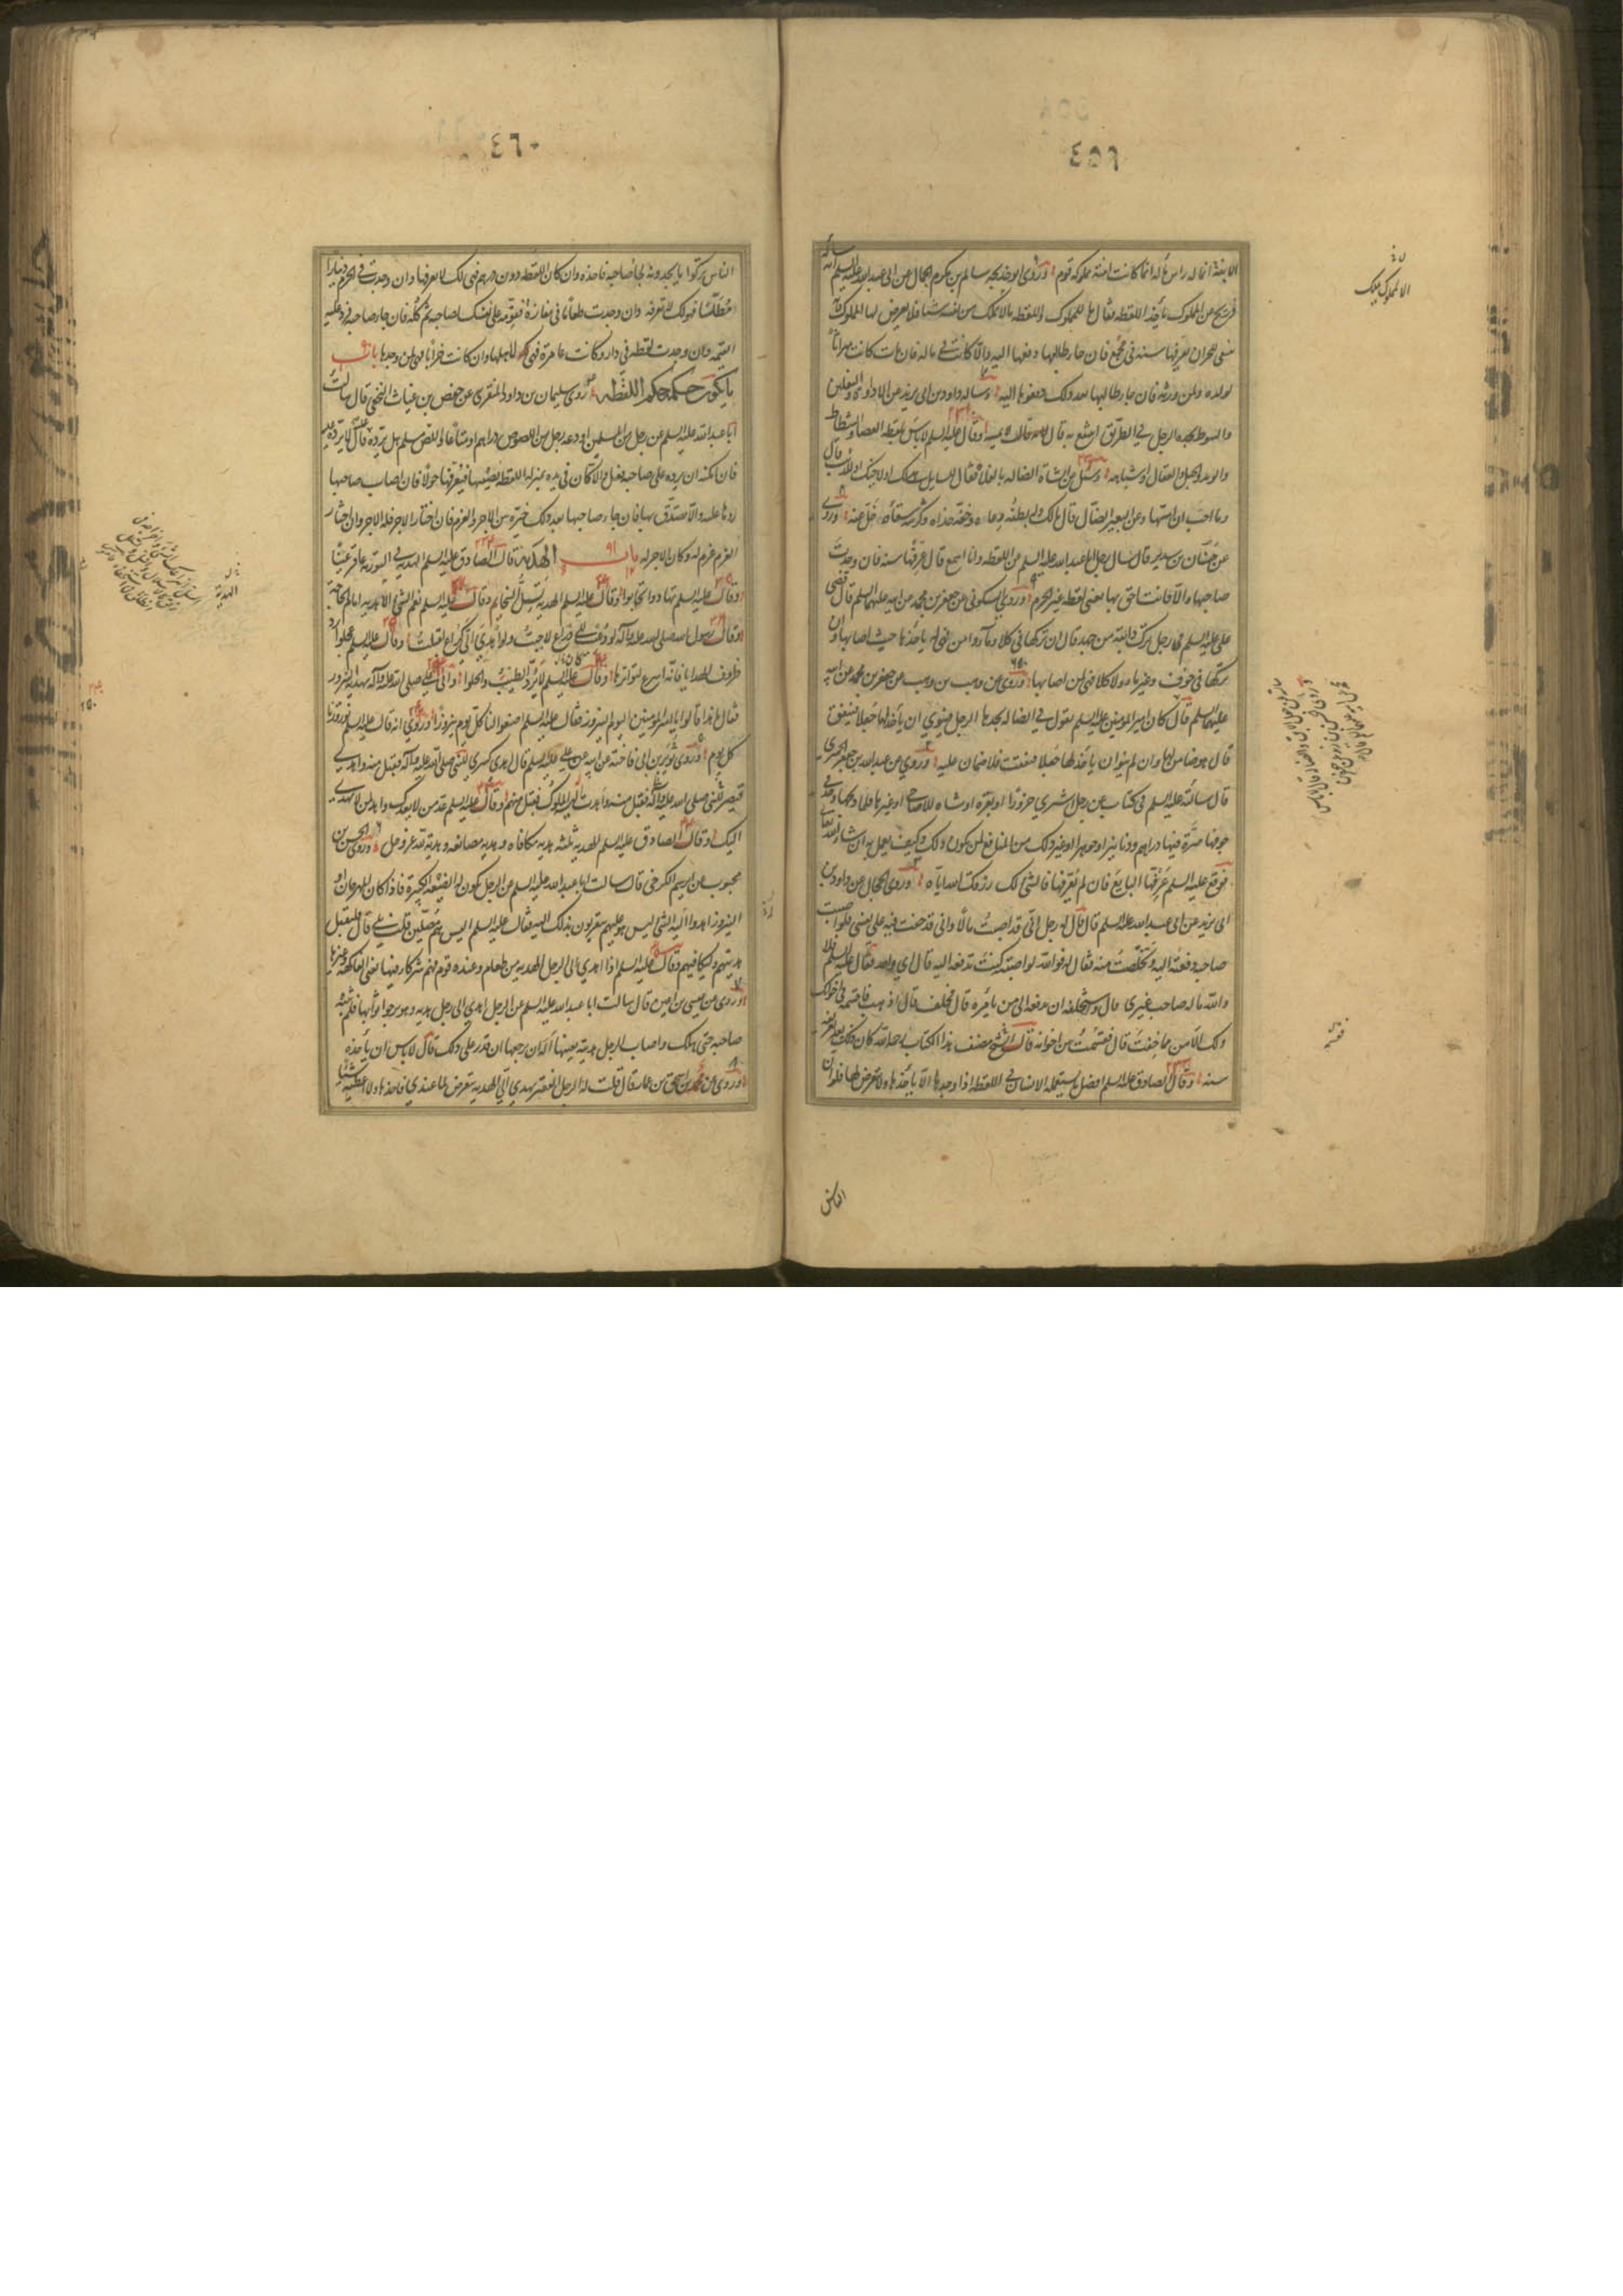 ٤٥٩
الا بنته انما له راس ماله انما كانت ابنته مملوكة قوم وروى ابو خديجة سالم بن مكرم الجمال عن ابى عبد الله عليه السلم انه ساله
ذريح عن المملوك ياخذ اللقطة فقال ما للمملوك واللقطة والمملوك لا يملك من نفسه شيئا فلا يعرض لها المملوك فانه
ينبغى للحر ان يعرفها سنة فى مجمع فان جاء طالبها دفعها اليه والا كانت فى ماله فان مات كانت ميراثا
لولده ولمن ورثه فان جاء طالبها بعد ذلك دفعوها اليه وساله داود بن ابى يزيد عن الاداوة والنعلين
والسوط يجده الرجل فى الطريق اينتفع به قال لا يمسه وقال عليه السلم لا باس بلقطة العصا والشظاظ
والوتد والحبل والعقال واشباهه وسئل عن الشاة الضالة بالفلاة فقال للسايل هى لك او لاخيك او للذئب قال
وما احب ان امسها وعن البعير الضال قال مالك وله بطنه وعاه وخفه حذاه وكرشه سقاؤه خل عنه وروى
عن حنان بن سدير قال سال رجل ابا عبد الله عليه السلم عن اللقطة وانا اسمع قال تعرفها سنة فان وجدت
صاحبها والا فانت احق بها يعنى لقطة غير الحرم وروى السكونى عن جعفر بن محمد عن ابيه عليهما السلم قال قضى
على عليه السلم فى رجل ترك دابته من جهد قال ان تركها فى كلا وماء وامن فهى له ياخذها حيث اصابها وان
تركها فى خوف وغير ماء ولا كلا فهى لمن اصابها وروى عن وهب بن وهب عن جعفر بن محمد عن ابيه
عليهما السلم قال كان امير المومنين عليه السلم يقول فى الضالة يجدها الرجل فينوى ان ياخذ لها جعلا فتنفق
قال هو ضامن لها وان لم ينو ان ياخذ لها جعلا فنفقت فلا ضمان عليه وروى عن عبد الله بن جعفر الحميرى
قال سالته عليه السلم فى كتاب عن رجل اشترى جزورا او بقرة او شاة للاضاحى او غيرها فلما ذبحها وجد فى
جوفها صرة فيها دراهم او دنانير او جوهر او غير ذلك من المنافع لمن يكون ذلك وكيف يعمل به ان شاء الله تعالى
فوقع عليه السلم عرفها البايع فان لم يعرفها فالشئ لك رزقك الله اياه وروى الحجال عن داود بن
ابى يزيد عن ابى عبد الله عليه السلم قال قال له رجل انى قد اصبت مالا وانى قد خفت فيه على نفسى فلو اصبت
صاحبه دفعته اليه وتخلصت منه فقال له فوالله لو اصبته كنت تدفعه اليه قال اى والله فقال عليه السلم فلا
والله ماله صاحب غيرى قال واستحلفه ان يدفعه الى من يامره قال فحلف قال اذهب فاقسمه فى اخوانك
ولك الامن مما خفت قال فقسمت من اخوانه قال الشيخ مصنف هذا الكتاب رحمه الله كان ذلك بعد تعريفه
سنة وقال الصادق عليه السلم افضل ما يستعمله الانسان فى اللقطة اذا وجدها الا ياخذها ولا يتعرض لها فلو ان
الناس
٤٦٠
الناس تركوا ما يجدونه لجاء صاحبه فاخذه وان كان اللقطة دون درهم فهى لك لا تعرفها وان وجدت فى الحرم دينارا
مطلسا فهو لك لا تعرفه وان وجدت طعاما فى مفازة فقومه على نفسك لصاحبه ثم كله فان جاء صاحبه فرد عليه
القيمة وان وجدت لقطة فى دار وكانت عامرة فهى لاهلها وان كانت خرابا فهى لمن وجدها باب
ما يكون حكمه حكم اللقطة روى سليمان بن داود المنقرى عن حفص بن غياث النخعى قال سالت
ابا عبد الله عليه السلم عن رجل من المسلمين اودعه رجل من اللصوص دراهم او متاعا واللص مسلم هل يرده عليه قال لا يرده عليه
فان امكنه ان يرده على صاحبه فعل والا كان فى يده بمنزلة اللقطة يصيبها فيعرفها حولا فان اصاب صاحبها
ردها عليه والا تصدق بها فان جاء صاحبها بعد ذلك خيره بين الاجر والغرم فان اختار الاجر فله الاجر وان اختار
الغرم غرم له وكان الاجر له باب الهدية قال الصادق عليه السلم الهدية فى التورية عافر عينا
وقال عليه السلم تهادوا تحابوا وقال عليه السلم الهدية تسل السخايم وقال عليه السلم نعم الشئ الهدية امام الحاجة
وقال رسول الله صلى الله عليه وآله لو دعيت الى ذراع لاجبت ولو اهدى الى كراع لقبلت وقال عليه السلم عجلوا رد
ظروف الهدايا فانه اسرع لتواترها وقال عليه السلم لا يرد الطيب والحلوا واتى على صلى الله عليه وآله بهدية النيروز
فقال ما هذا قالوا يا امير المومنين اليوم النيروز فقال عليه السلم اصنعوا لنا كل يوم نيروزا وروى انه قال عليه السلم نوروزنا
كل يوم وروى ثوير بن ابى فاختة عن ابيه عن على عليه السلم قال اهدى كسرى للنبى صلى الله عليه وآله فقبل منه واهدى
قيصر للنبى صلى الله عليه وآله فقبل منه واهدت له الملوك فقبل منهم وقال عليه السلم عد من لا يعودك واهد لمن لا يهدى
اليك وقال الصادق عليه السلم الهدية ثلثة هدية مكافاة وهدية مصانعة وهدية لله عز وجل وروى الحسن بن
محبوب عن ابراهيم الكرخى قال سالت ابا عبد الله عليه السلم عن الرجل يكون له الضيعة الكبيرة فاذا كان المهرجان او
النيروز اهدوا اليه الشئ ليس هو عليهم يتقربون بذلك اليه فقال عليه السلم اليس هم مصلين قلت بلى قال فليقبل
هديتهم وليكافيهم وقال عليه السلم اذا اهدى الى الرجل الهدية من طعام وعنده قوم فهم شركاؤه فيها يعنى الفاكهة وغيرها
وروى عن عيسى بن اعين قال سالت ابا عبد الله عليه السلم عن الرجل اهدى الى رجل هدية وهو يرجو ثوابها فلم يثبه
صاحبه حتى هلك واصاب الرجل هديته بعينها اله ان يرجعها ان قدر على ذلك قال لا باس ان ياخذه
وروى عن محمد بن اسحق بن عمار قال قلت له الرجل الفقير يهدى الى الهدية يتعرض لما عندى فاخذها ولا اعطيه شيئا